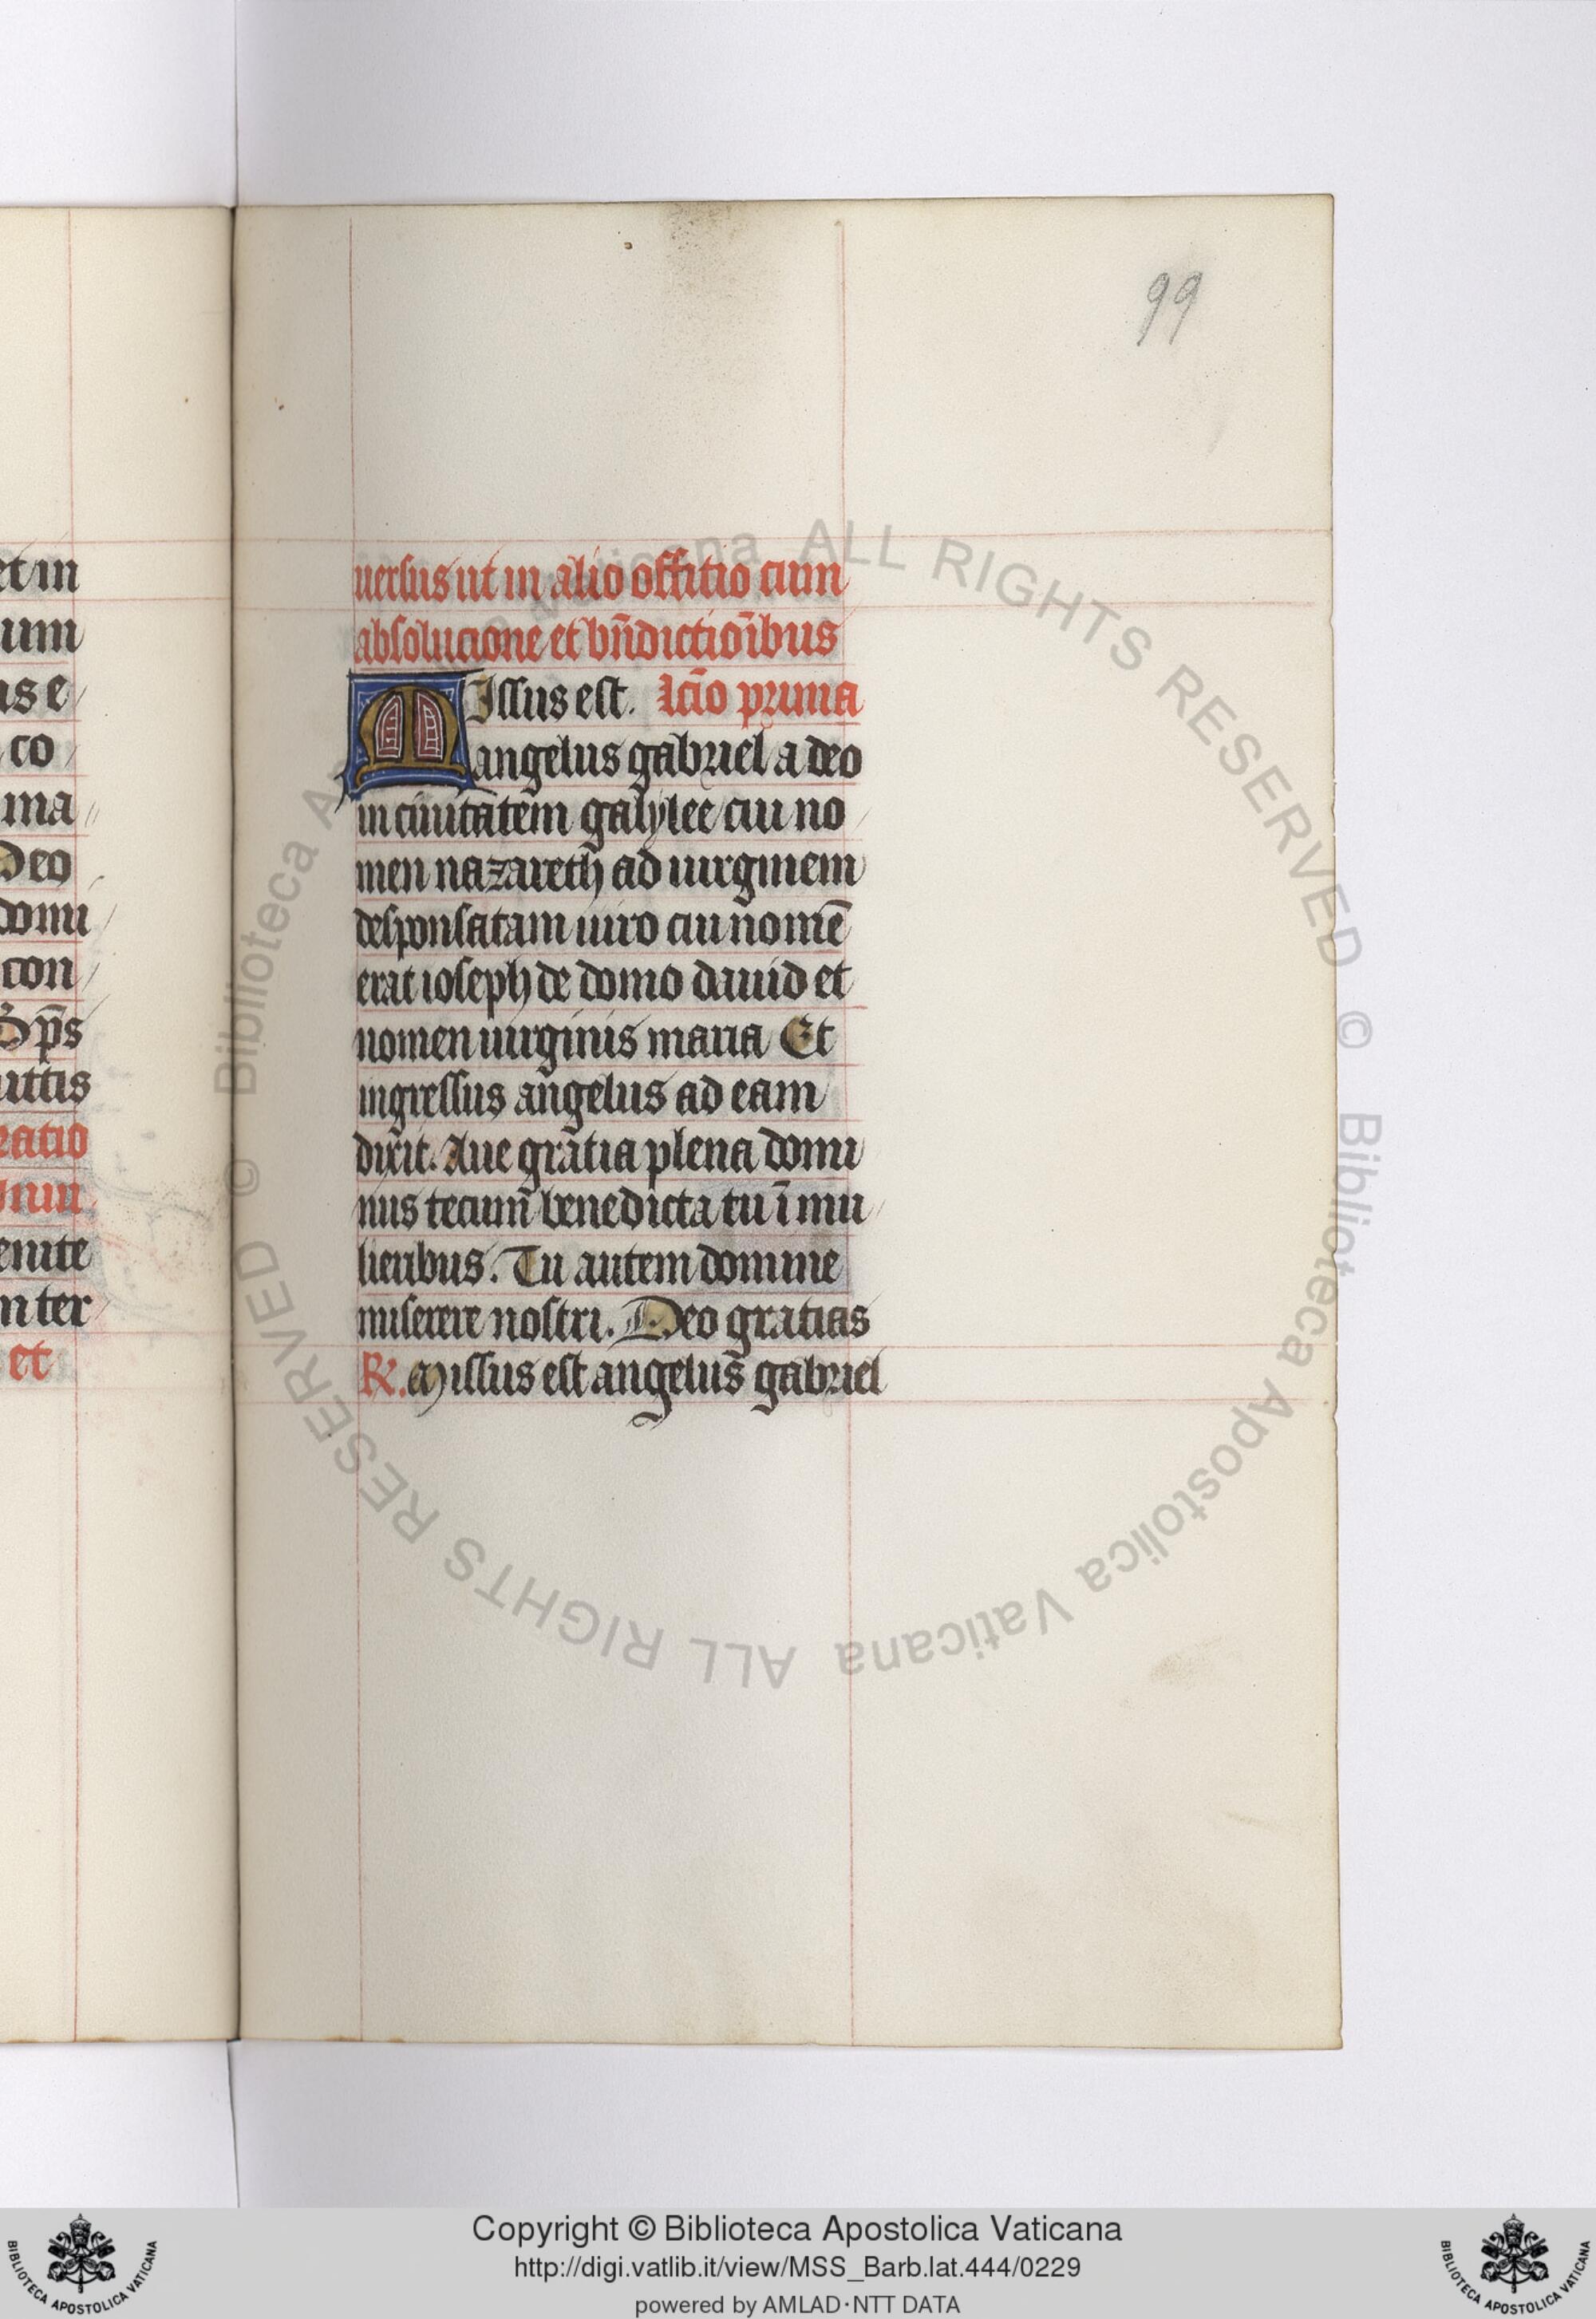 99
et in
um
as e
co
ma
Deo
domi
con
Sp̄s
uttis
ratio
enite
n ter
et
uersus ut in alio offitio cum
absolucione et bn̄dictioībus
MIssus est. Lc̄io prima
angelus gabriel a deo
in ciuitatem galylee cui no
men nazareth ad uirginem
desponsatam uiro cui nomē
erat ioseph de domo dauid et
nomen uirginis maria Et
ingressus angelus ad eam
dixit. Aue gratia plena domi
nus tecum benedicta tu ī mu
lieribus. Tu autem domine
miserere nostri. Deo gratias
R. Missus est angelus gabriel
© Biblioteca Apostolica Vaticana ALL RIGHTS RESERVED © Biblioteca Apostolica Vaticana ALL RIGHTS RESERVED
Copyright © Biblioteca Apostolica Vaticana
http://digi.vatlib.it/view/MSS_Barb.lat.444/0229
powered by AMLAD·NTT DATA
BIBLIOTECA APOSTOLICA VATICANA
BIBLIOTECA APOSTOLICA VATICANA